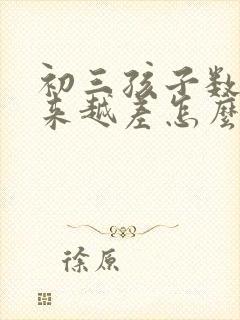 初三孩子数
来越差怎麼
徐原